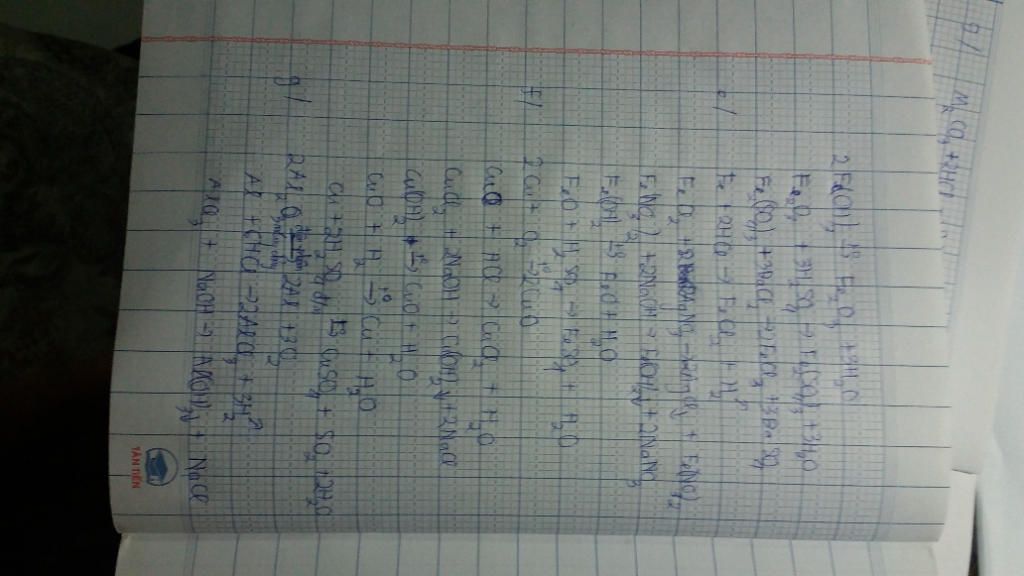 g/ MgCO3 + 2HCl
2Fe(OH)3 t° Fe2O3 + 3H2O
Fe2O3 + 3H2SO4 → Fe2(SO4)3 + 3H2O
Fe2(SO4)3 + 3BaCl2 → 2FeCl3 + 3BaSO4
e/ Fe + 2HCl → FeCl2 + H2↑
FeCl2 + AgNO3 → 2AgCl↓ + Fe(NO3)2
Fe(NO3)2 + 2NaOH → Fe(OH)2↓ + 2NaNO3
Fe(OH)2 t° FeO + H2O
FeO + H2SO4 → FeSO4 + H2O
f/ 2Cu + O2 t°→ 2CuO
CuO + HCl → CuCl2 + H2O
CuCl2 + 2NaOH → Cu(OH)2↓ + 2NaCl
Cu(OH)2 t°→ CuO + H2O
CuO + H2 t°→ Cu + H2O
Cu + 2H2SO4 đặc t° CuSO4 + SO2 + 2H2O
g/ 2Al2O3 2Al + 3O2
Al + 6HCl → 2AlCl3 + 3H2↑
AlCl3 + NaOH → Al(OH)3↓ + NaCl
TÂN TIẾN